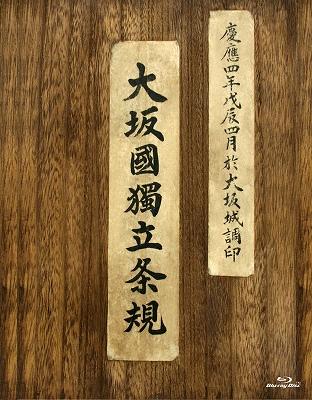 慶應四年戊辰四月於大坂城調印
大坂國獨立条規
Blu-ray Disc